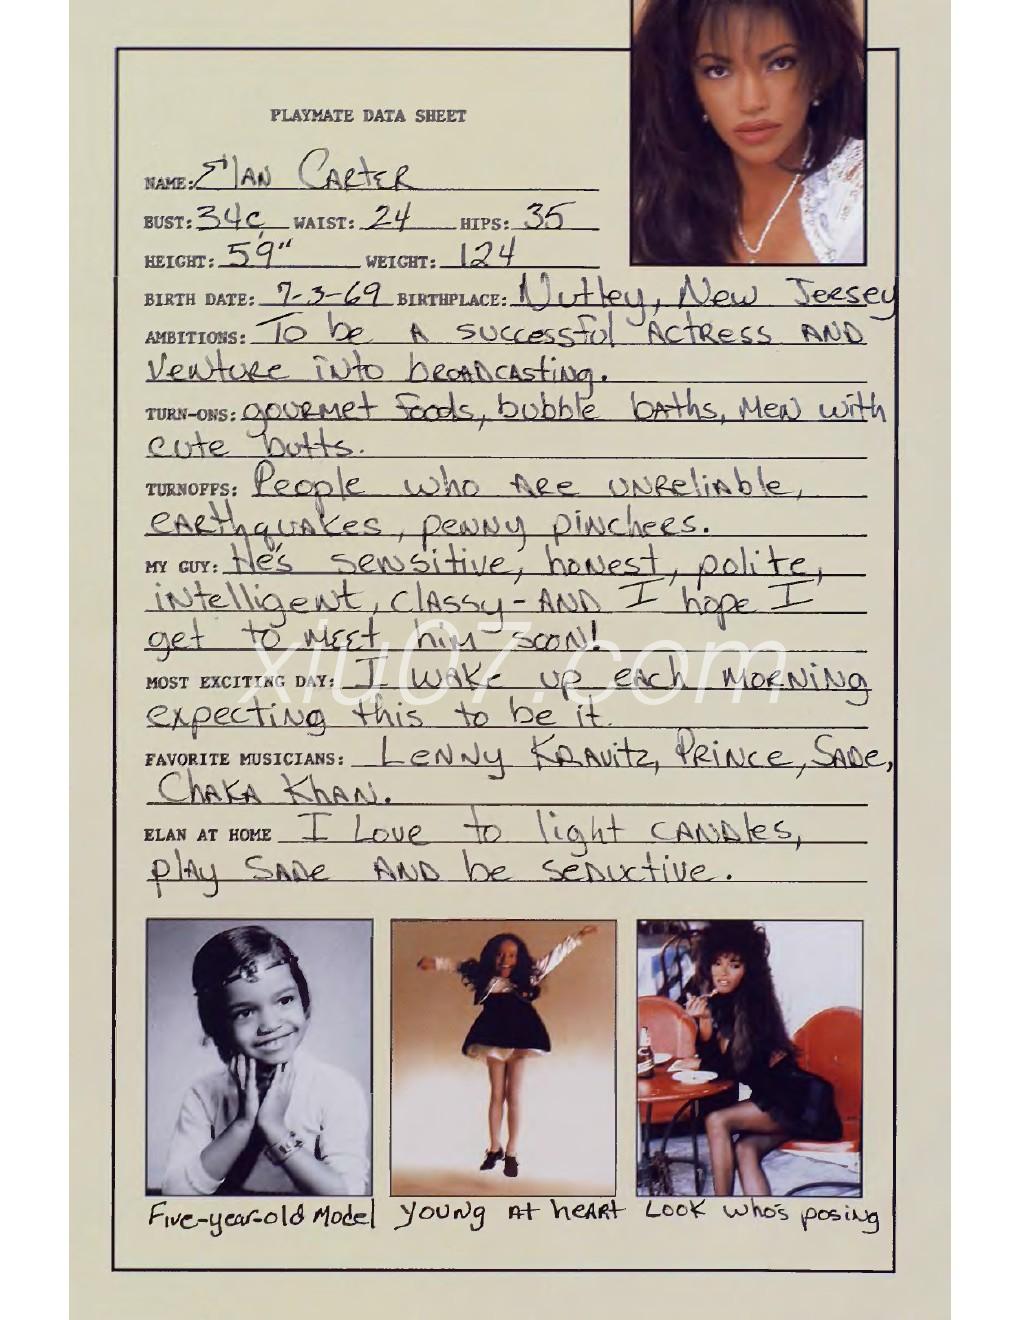 PLAYMATE DATA SHEET
NAME: Elan Carter
BUST: 34C WAIST: 24 HIPS: 35
HEIGHT: 5'9" WEIGHT: 124
BIRTH DATE: 7-3-69 BIRTHPLACE: Nutley, New Jersey
AMBITIONS: To be a successful actress and
venture into broadcasting.
TURN-ONS: gourmet foods, bubble baths, men with
cute butts.
TURNOFFS: People who are unreliable,
earthquakes, penny pinchers.
MY GUY: He's sensitive, honest, polite,
intelligent, classy - and I hope I
get to meet him soon!
xiu07.com
MOST EXCITING DAY: I wake up each morning
expecting this to be it.
FAVORITE MUSICIANS: Lenny Kravitz, Prince, Sade,
Chaka Khan.
ELAN AT HOME I love to light candles,
play Sade and be seductive.
Five-year-old model
Young at heart
Look who's posing